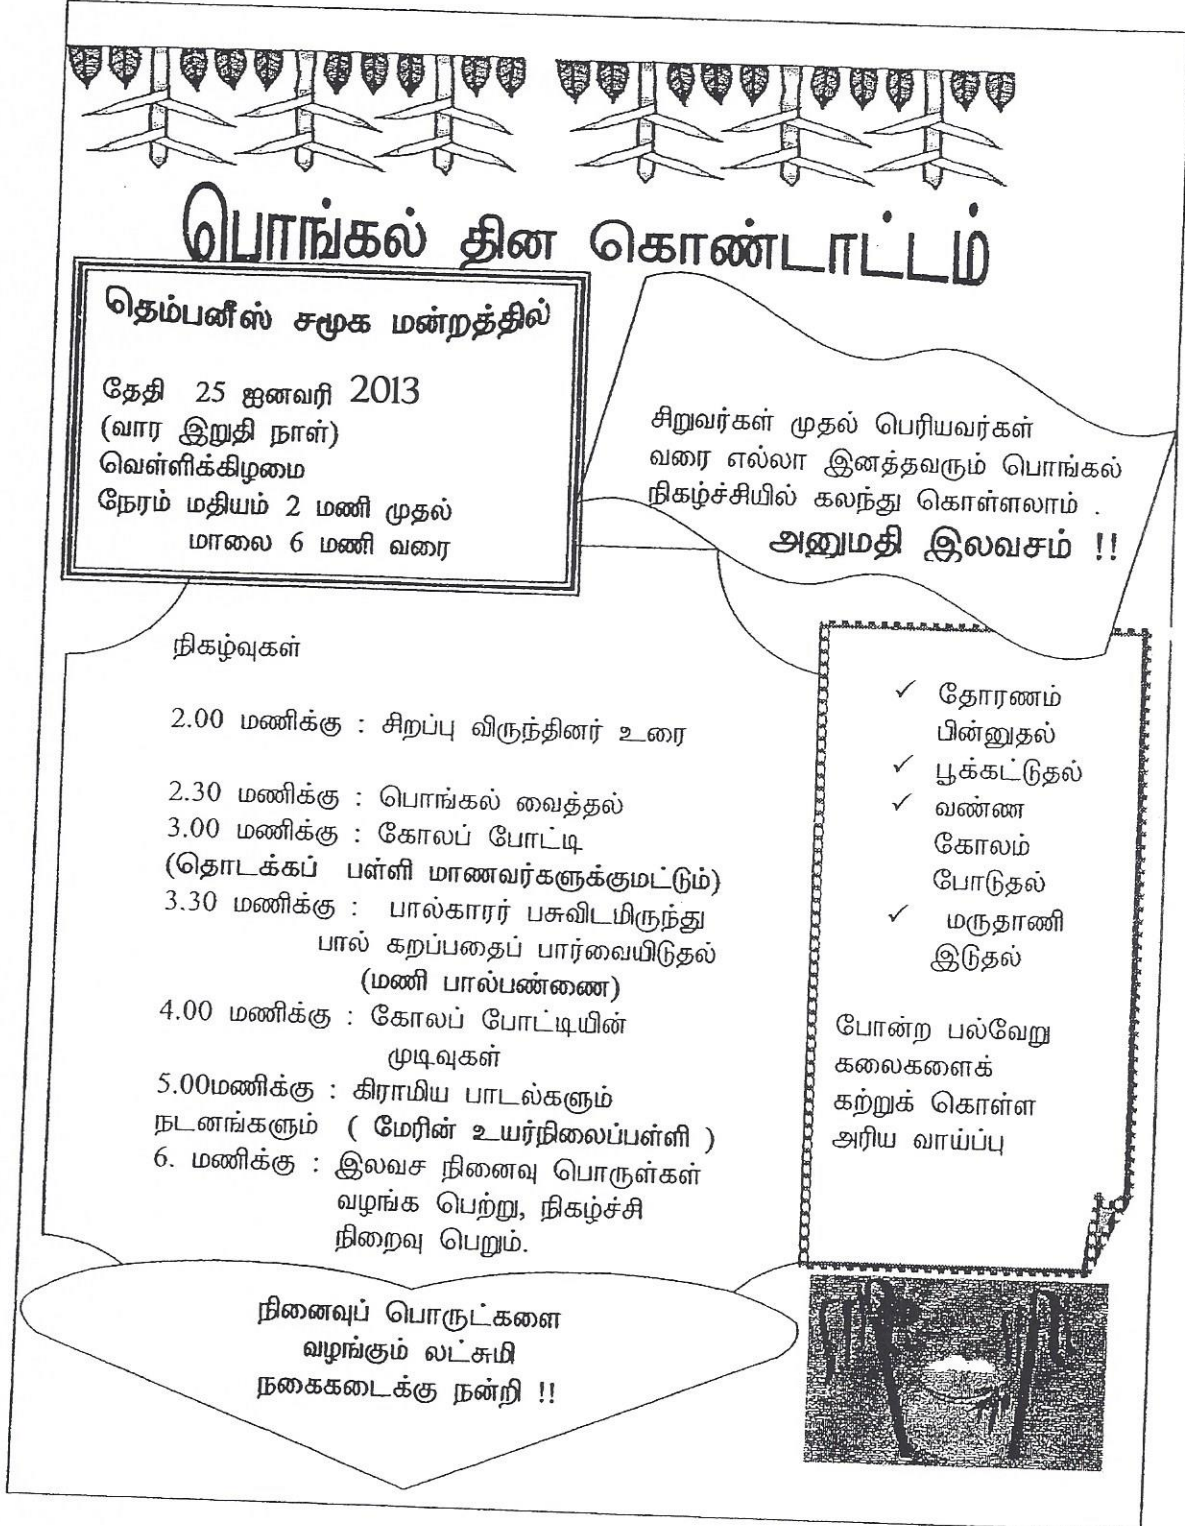 பொங்கல் தின கொண்டாட்டம்
தெம்பனீஸ் சமூக மன்றத்தில்
தேதி 25 ஜனவரி 2013
(வார இறுதி நாள்)
வெள்ளிக்கிழமை
நேரம் மதியம் 2 மணி முதல்
மாலை 6 மணி வரை
சிறுவர்கள் முதல் பெரியவர்கள்
வரை எல்லா இனத்தவரும் பொங்கல்
நிகழ்ச்சியில் கலந்து கொள்ளலாம் .
அனுமதி இலவசம் !!
நிகழ்வுகள்
2.00 மணிக்கு : சிறப்பு விருந்தினர் உரை
2.30 மணிக்கு : பொங்கல் வைத்தல்
3.00 மணிக்கு : கோலப் போட்டி
(தொடக்கப் பள்ளி மாணவர்களுக்குமட்டும்)
3.30 மணிக்கு : பால்காரர் பசுவிடமிருந்து
பால் கறப்பதைப் பார்வையிடுதல்
(மணி பால்பண்ணை)
4.00 மணிக்கு : கோலப் போட்டியின்
முடிவுகள்
5.00மணிக்கு : கிராமிய பாடல்களும்
நடனங்களும் ( மேரின் உயர்நிலைப்பள்ளி )
6. மணிக்கு : இலவச நினைவு பொருள்கள்
வழங்க பெற்று, நிகழ்ச்சி
நிறைவு பெறும்.
✓ தோரணம்
பின்னுதல்
✓ பூக்கட்டுதல்
✓ வண்ண
கோலம்
போடுதல்
✓ மருதாணி
இடுதல்
போன்ற பல்வேறு
கலைகளைக்
கற்றுக் கொள்ள
அரிய வாய்ப்பு
நினைவுப் பொருட்களை
வழங்கும் லட்சுமி
நகைகடைக்கு நன்றி !!